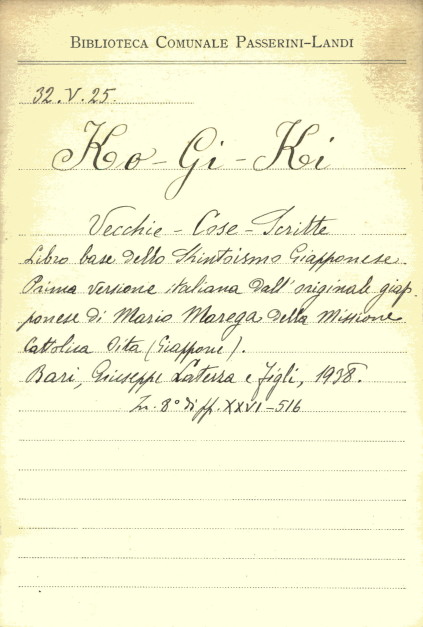 BIBLIOTECA COMUNALE PASSERINI-LANDI
32.V.25.
Ko-Gi-Ki
Vecchie-Cose-Scritte
Libro base dello Shintoismo Giapponese.
Prima versione italiana dall'originale giap-
ponese di Mario Marega della Missione
Cattolica Oita (Giappone).
Bari, Giuseppe Laterza e figli, 1938.
In. 8° di pp. XXVI-516